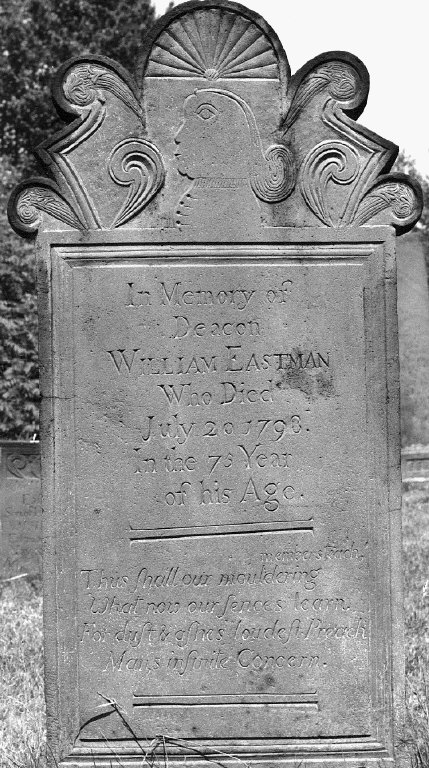 In Memory of
Deacon
WILLIAM EASTMAN
Who Died
July 20 1793.
In the 78 Year
of his Age.
members teach,
Thus ſhall our mouldering
What now our ſences learn.
For duſt & aſhes loudeſt Preach
Man,s infinite Concern.